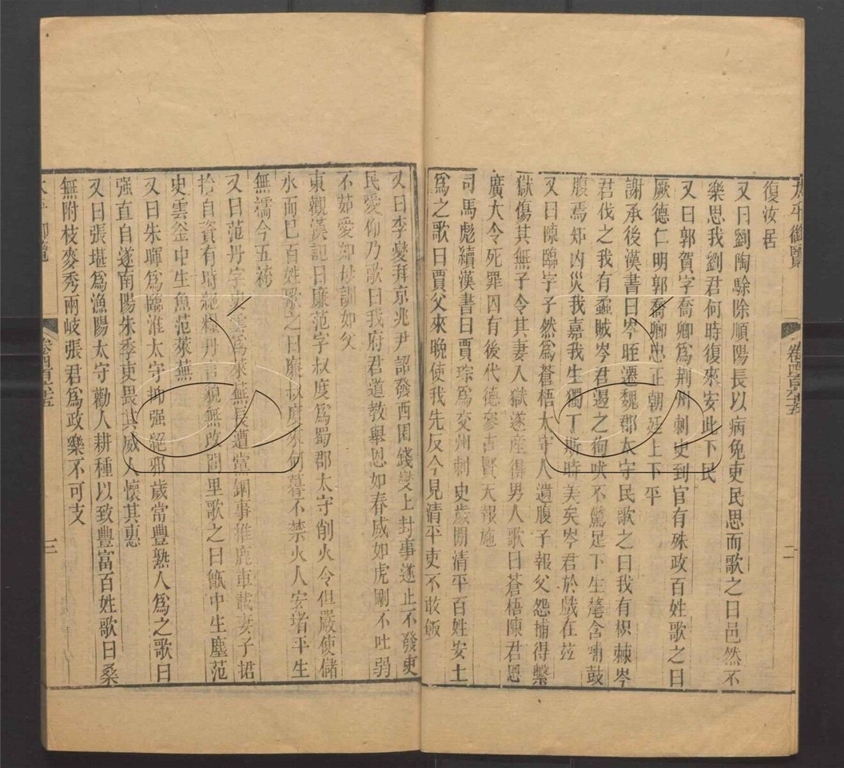 太平御覽
卷四百六十五
二
復汝居
又曰劉陶除順陽長以病免吏民思而歌之曰邑然不
樂思我劉君何時復來安此下民
又曰郭賀字喬卿爲荆州刺史到官有殊政百姓歌之曰
厥德仁明郭喬卿忠正朝廷上下平
謝承後漢書曰岑晊遷魏郡太守民歌之曰我有枳棘岑
君伐之我有蟊賊岑君遏之狗吠不驚足下生氂含哺鼓
腹焉知凶災我嘉我生獨丁斯時美矣岑君於戲在兹
又曰陳臨字子然爲蒼梧太守人遺腹子報父怨捕得繫
獄傷其無子令其妻入獄遂産得男人歌曰蒼梧陳君恩
廣大令死罪囚有後代德參古賢天報施
司馬彪續漢書曰賈琮爲交州刺史歲間清平百姓安土
爲之歌曰賈父來晚使我先反今見清平吏不敢飯
又曰李燮拜京兆尹詔發西園錢燮上封事遂止不發吏
民愛仰乃歌曰我府君道教舉恩如春威如虎剛不吐弱
不茹愛如母訓如父
東觀漢記曰廉范字叔度爲蜀郡太守削火令但嚴使儲
水而已百姓歌之曰廉叔度來何暮不禁火人安堵平生
無襦今五袴
又曰范丹字史雲爲萊蕪長遭黨錮事推鹿車載妻子捃
拾自資有時絶粮丹言貌無改閭里歌之曰甑中生塵范
史雲釡中生魚范萊蕪
又曰朱暉爲臨淮太守 强絶邪歲常豐熟人爲之歌曰
强直自遂南陽朱季吏畏其威人懷其惠
又曰張堪爲漁陽太守勸人耕種以致豐富百姓歌曰桑
無附枝麥秀兩岐張君爲政樂不可支
太平御覽
卷四百六十五
三